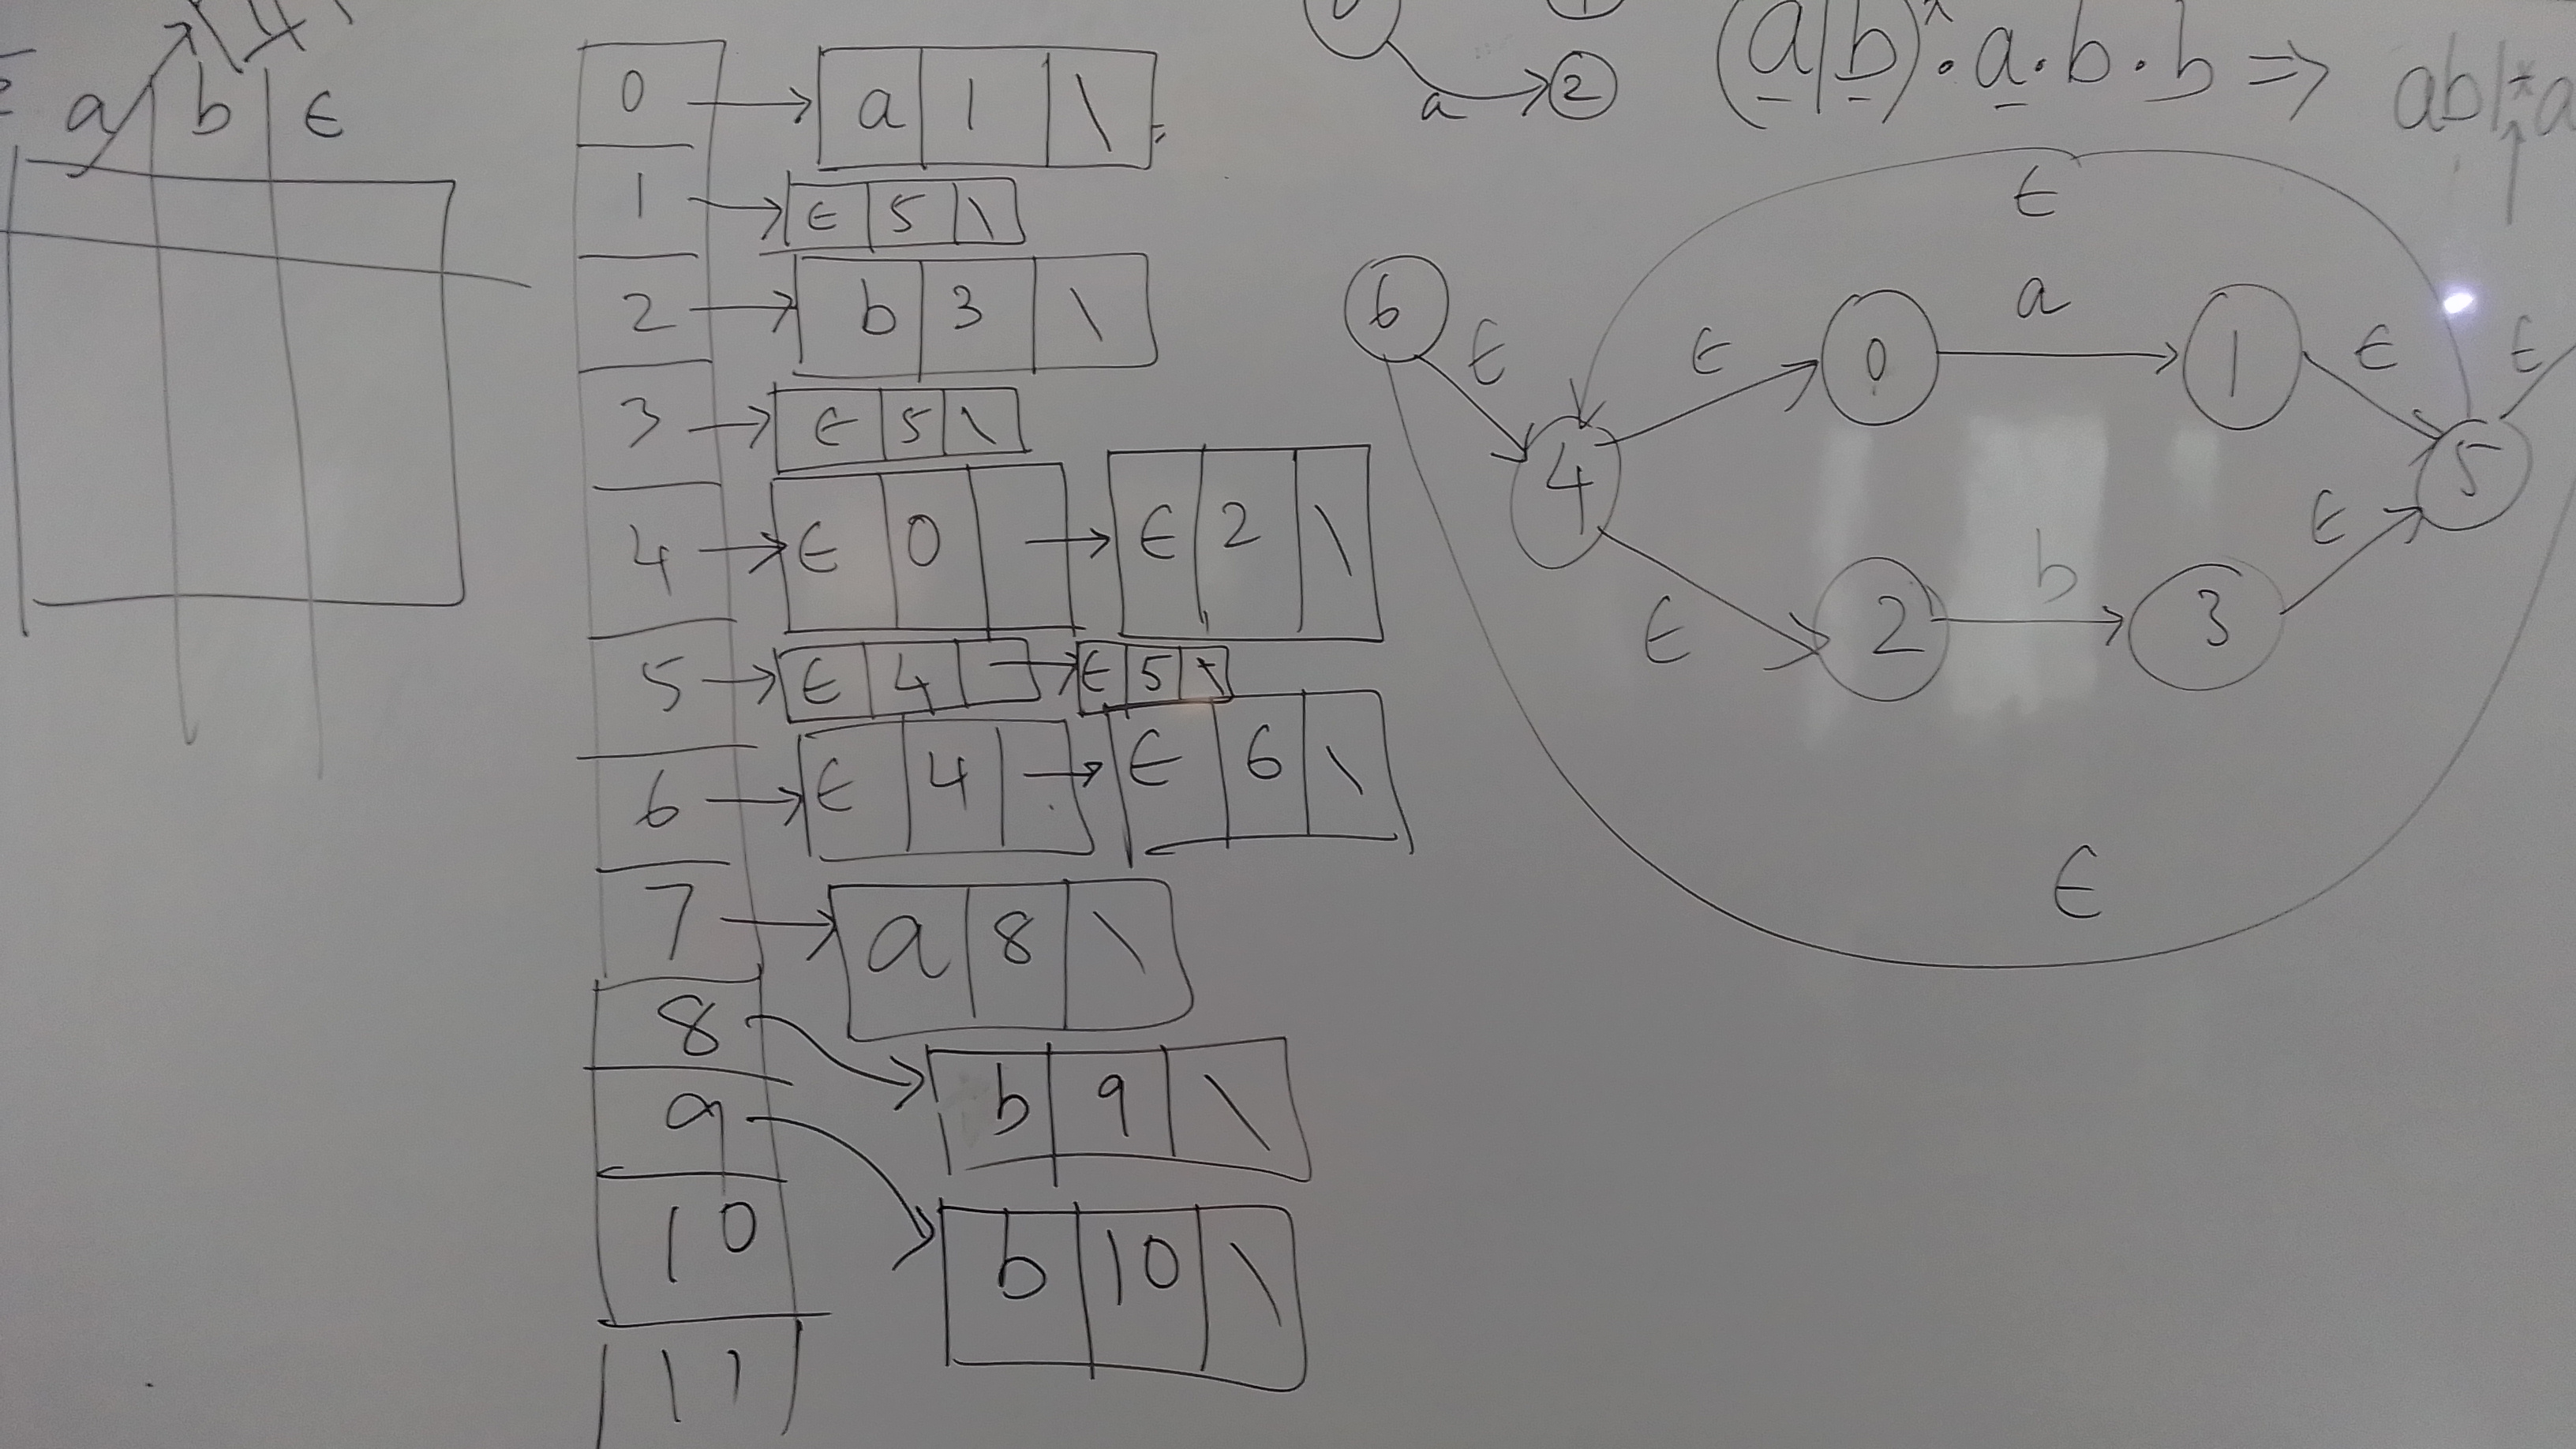 a b ϵ
0 → a | 1 | \
1 → ϵ | 5 | \
2 → b | 3 | \
3 → ϵ | 5 | \
4 → ϵ | 0 | → ϵ | 2 | \
5 → ϵ | 4 | → ϵ | 5 | \
6 → ϵ | 4 | → ϵ | 6 | \
7 → a | 8 | \
8 → b | 9 | \
9 → b | 10 | \
10
11
a 2
(a|b)*.a.b.b ⇒ ab|*a
ϵ
6 ϵ 4 ϵ 0 a 1 ϵ 5 ϵ
ϵ 2 b 3 ϵ
ϵ